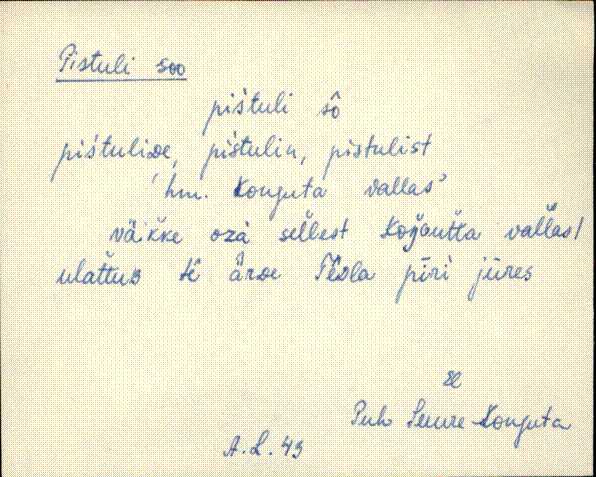 Pistuli soo
piśtuli sô
piśtulide, piśtulin, pistulist
'hm. Konguta vallas'
väikke oza sellest Koŋɢutta vallas/
ulattuʙ tê ärde Tëdla pīri jūres
Puh Suure-Konguta
A.L. 43